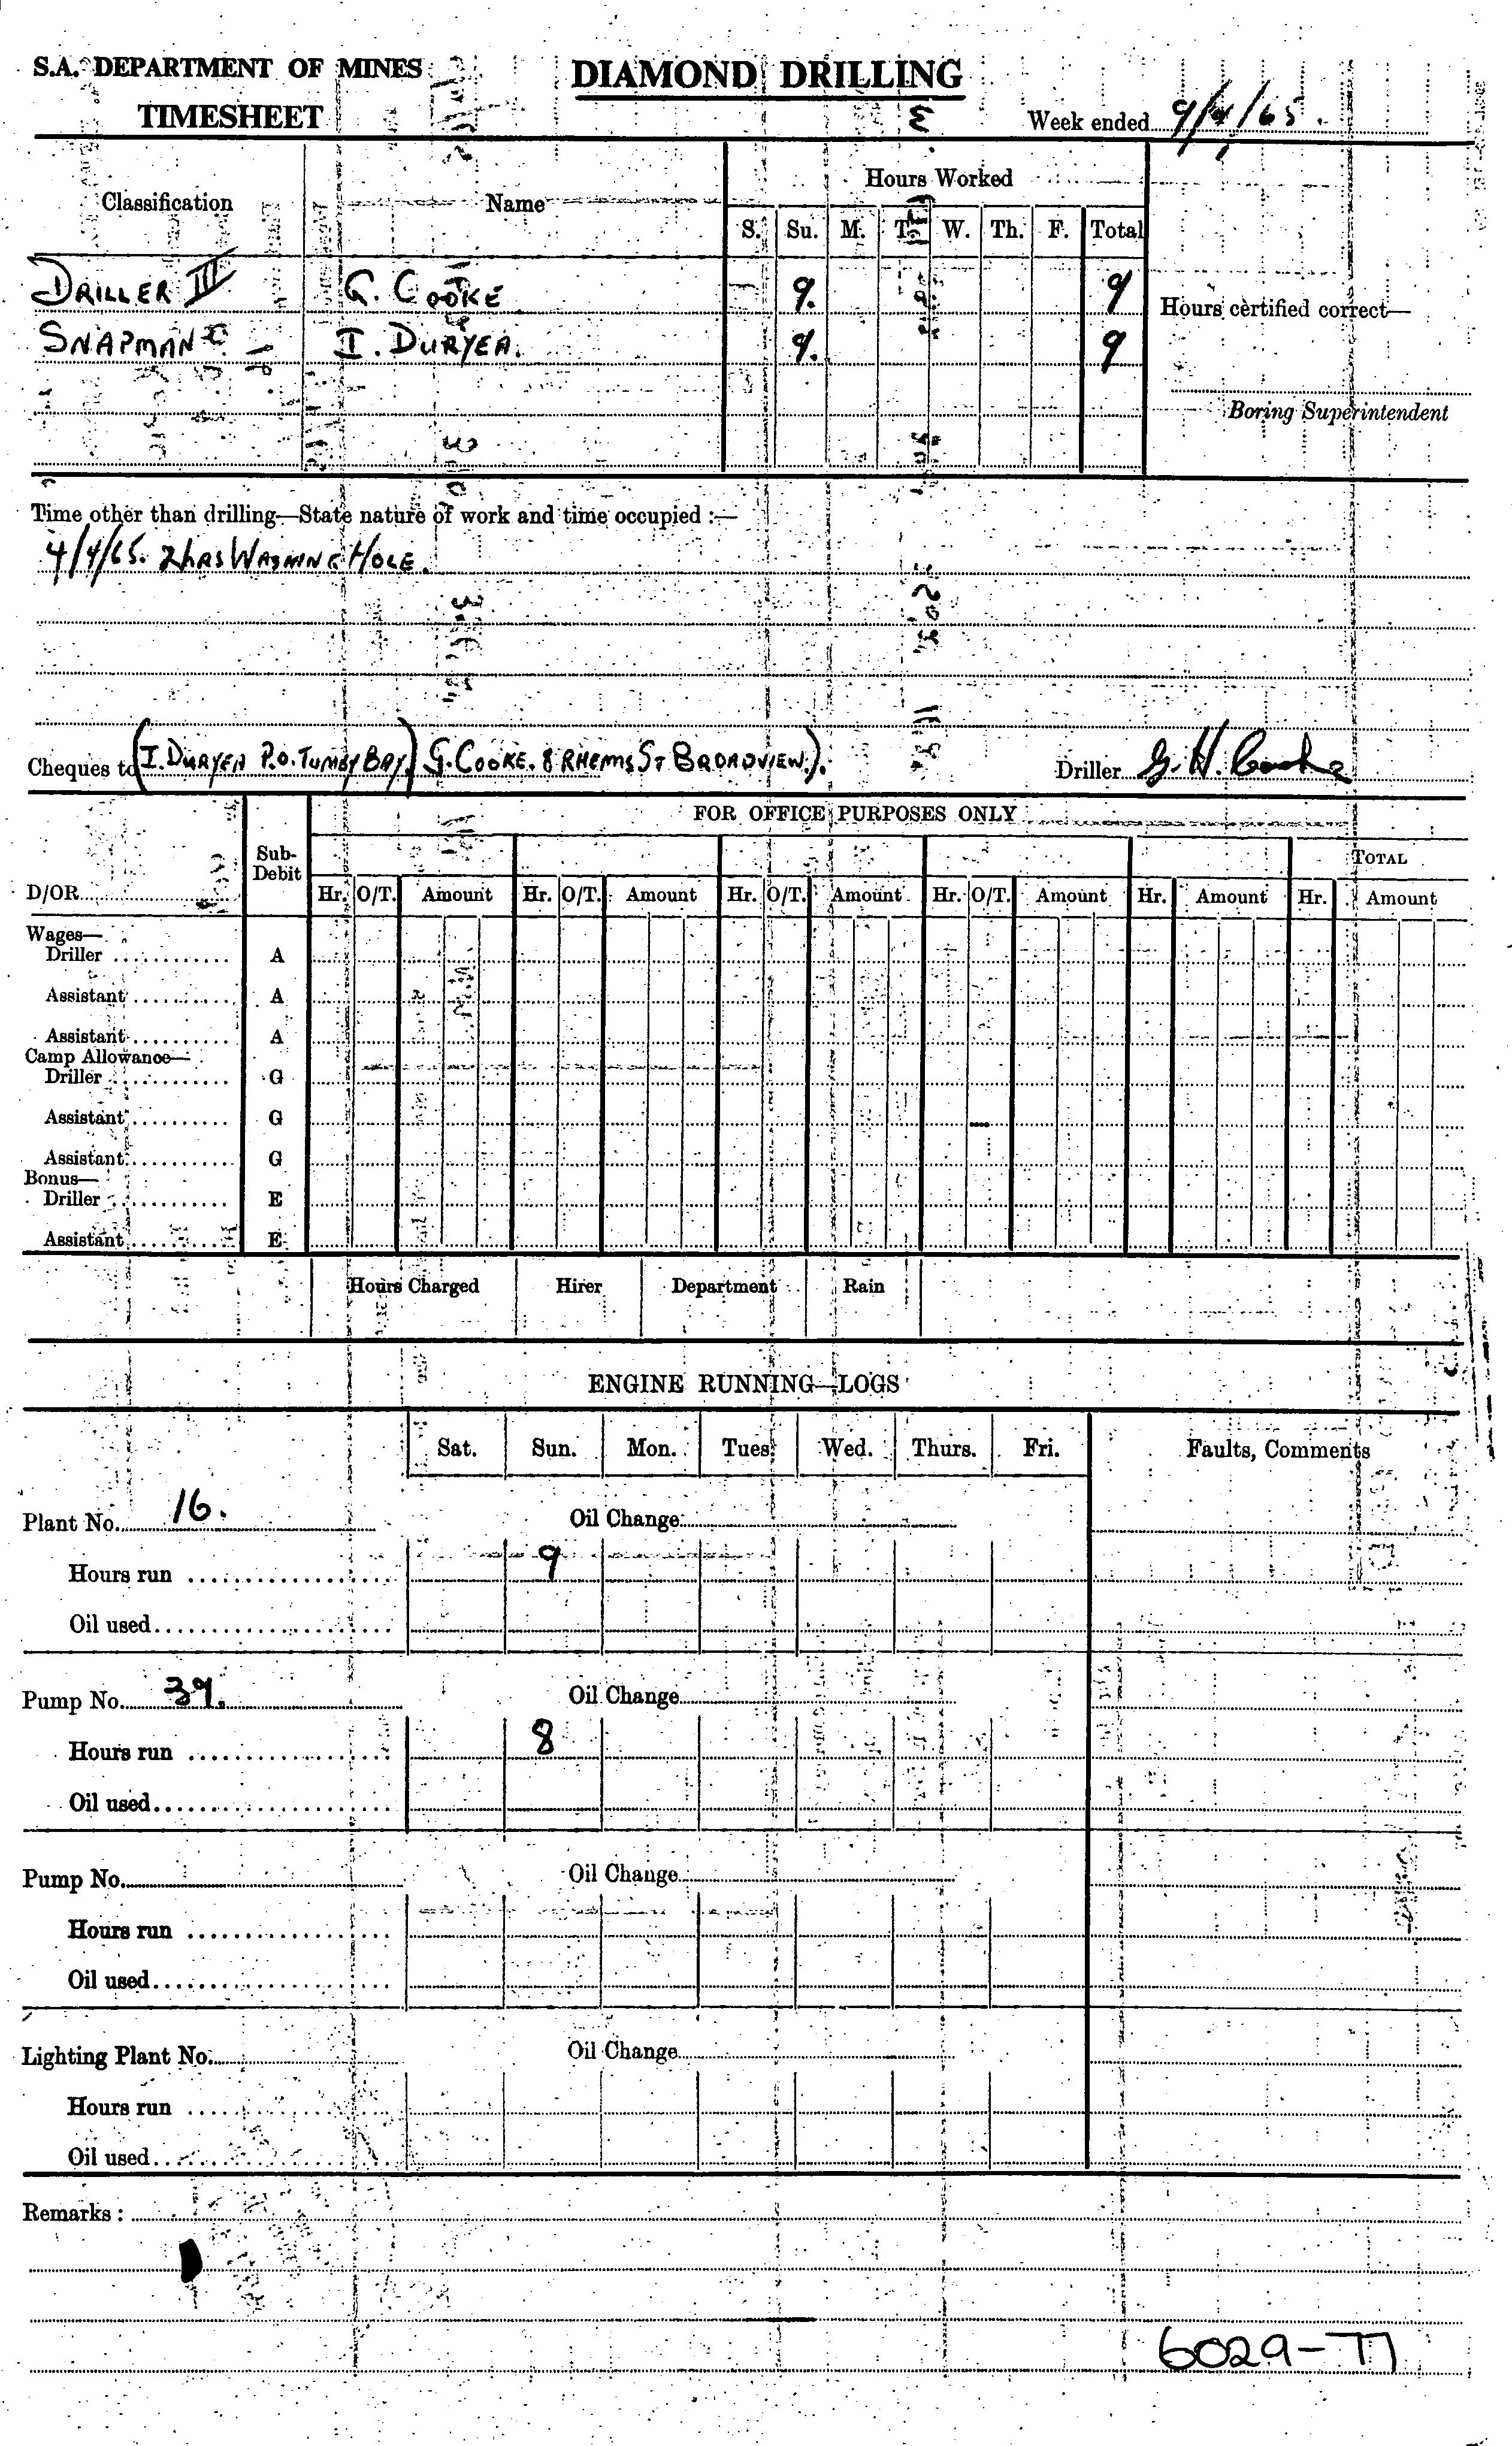 S.A. DEPARTMENT OF MINES
DIAMOND DRILLING
TIMESHEET
Week ended 9/4/65.
Classification Name Hours Worked
S. Su. M. T. W. Th. F. Total
DRILLER III G. COOKE 9. 9
Hours certified correct—
SNAPMAN I. DURYEA. 9. 9
Boring Superintendent
Time other than drilling—State nature of work and time occupied :—
4/4/65. 2 HRS WASHING HOLE.
Cheques to (I. DURYEA P.O. TUMBY BAY.) G. COOKE. 8 RHEIMS ST BROADVIEW.).
Driller G. H. Cooke
FOR OFFICE PURPOSES ONLY
Sub-Debit TOTAL
D/OR Hr. O/T. Amount Hr. O/T. Amount Hr. O/T. Amount Hr. O/T. Amount Hr. Amount Hr. Amount
Wages—
Driller A
Assistant A
Assistant A
Camp Allowance—
Driller G
Assistant G
Assistant G
Bonus—
Driller E
Assistant E
Hours Charged Hirer Department Rain
ENGINE RUNNING—LOGS
Sat. Sun. Mon. Tues. Wed. Thurs. Fri. Faults, Comments
Plant No. 16. Oil Change
Hours run 9
Oil used
Pump No. 39. Oil Change
Hours run 8
Oil used
Pump No. Oil Change
Hours run
Oil used
Lighting Plant No. Oil Change
Hours run
Oil used
Remarks :
6029-77